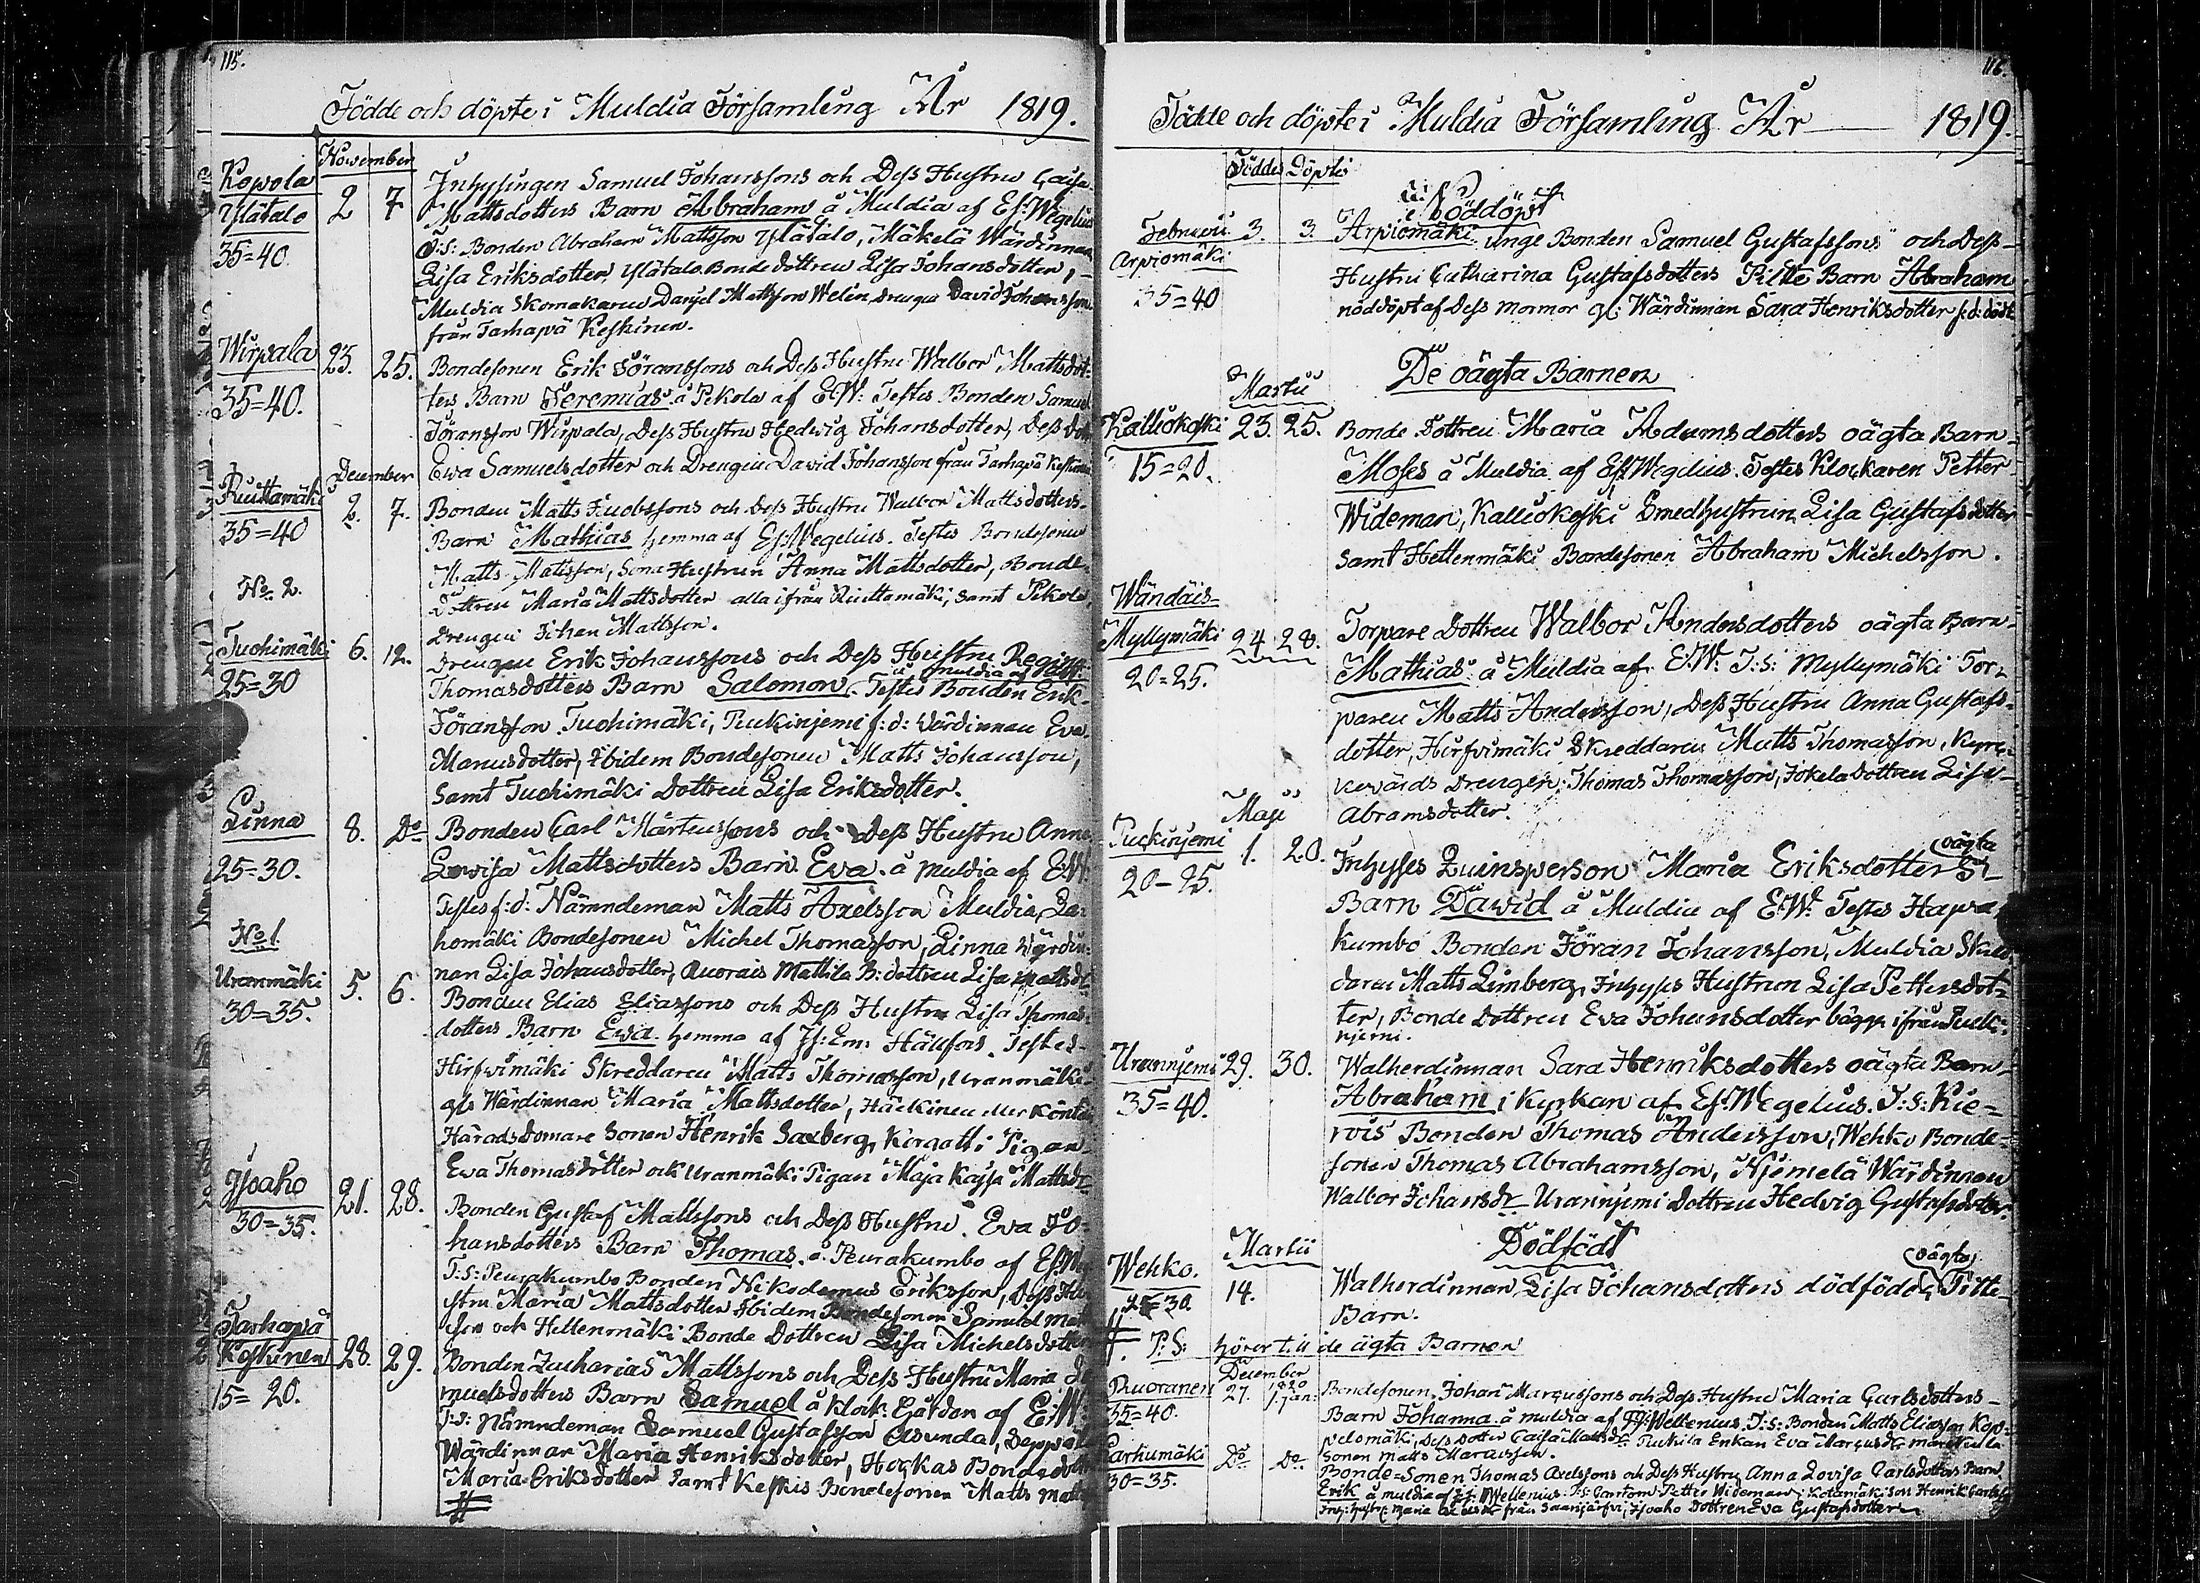 115.
Födde och döpte i Muldia Församling År 1819.
November
Kopola
Ylätalo
35=40.
2 7
Inhysingen Samuel Johanssons och Dess Hustru Caisa
Mattsdotters Barn Abraham å Muldia af Ef: Wegelius
T:s: Bonden Abraham Mattsson Ylätalo, Mäkelä Wärdinnan
Lisa Eriksdotter, Ylätalo Bonde dottren Lisa Johansdotter,
Muldia Skomakaren Daniel Mattsson Welin, Drengen David Johansson
från Tarhapä Keskinen.
Wirpala
35=40.
23. 25.
Bondesonen Erik Jöranssons och Dess Hustru Walbor Mattsdot-
ters Barn Jeremias å Pekola af E:W: Testes Bonden Samuel
Jöransson Wirpala, Dess Hustru Hedwig Johansdotter, Dess dotter
Ewa Samuelsdotter och Drengen David Johansson från Tarhapä Keskinen
December
Riuttamäki
35=40
No. 2.
2. 7.
Bonden Matts Jacobssons och Dess Hustru Walbor Mattsdotters
Barn Mathias hemma af Ef: Wegelius. Testes Bondesonen
Matts Mattsson, Sona Hustrun Anna Mattsdotter, Bonde-
Dottren Maria Mattsdotter alla ifrån Riuttamäki, samt Pekola
Drengen Johan Mattsson.
Tuohimäki
25=30
6. 12.
Drengen Erik Johanssons och Dess Hustru Regina
å Muldia af
Thomasdotters Barn Salomon. Testes Bonden Erik
Jöransson Tuohimäki, Puckinjemi f:d: Wärdinnan Eva
Manusdotter, Ibidem Bondesonen Matts Johansson,
samt Tuohimäki Dottren Lisa Eriksdotter.
Linna
25=30.
No 1.
8. Do
Bonden Carl Mårtenssons och Dess Hustru Anna
Lowisa Mattsdotters Barn Eva å Muldia af E:W:
Testes f:d: Nämndeman Matts Axelsson Muldia, La-
homäki Bondesonen Michel Thomasson, Linna Wärdin-
nan Lisa Johansdotter, Quorais Mattila B: dottren Lisa Mattsdr
Uranmäki
30=35.
5. 6.
Bonden Elias Eliassons och Dess Hustru Lisa Thomas-
dotters Barn Ewa hemma af Hällfors. Testes
Hirfvimäki Skreddaren Matts Thomasson, Uranmäki
gla Wärdinnan Maria Mattsdotter,
Häradsdomare Sonen Henrik Saxberg, Korgatti Pigan
Ewa Thomasdotter och Uranmäki Pigan Maja Kajsa Mattsdr
Isoaho
30=35.
21. 28.
Bonden Gustaf Mattssons och Dess Hustru Eva Jo-
hansdotters Barn Thomas å Peurakumbo af Ef: We
T:s: Peurakumbo Bonden Nikodemus Eriksson, Dess Hu-
stru Maria Mattsdotter Ibidem Bondesonen Samuel Matts-
son och Hettenmäki Bonde Dottren Lisa Michelsdotter
Tarhapä
Keskinen
15=20.
28. 29.
Bonden Zacharias Mattssons och Dess Hustru Maria Sa-
muelsdotters Barn Samuel å Klock Gården af E:W:
T:s: Nämndeman Samuel Gustafsson Asunda, Seppälä
Wärdinnan Maria Henriksdotter, Hockas Bondedottren
Maria Eriksdotter samt Keskis Bondesonen Matts Matts
#
116.
Födde och döpte i Muldia Församling År 1819.
Födde Döpte
Nöddöpt
Februari
Arpiomäki
35=40
3. 3.
Arpiomäki unge Bonden Samuel Gustafssons och Dess
Hustru Catharina Gustafsdotters Pilte Barn Abraham
nöddöpt af Dess Mormor gl: Wärdinnan Sara Henriksdotter s:d: dödt
De oägta Barnen
Martii
Kalliokoski
15=20.
23. 25.
Bonde Dottren Maria Adamsdotters oägta Barn
Moses å Muldia af Ef: Wegelius. Testes Klockaren Petter
Wideman, Kalliokoski Smedhustrun Lisa Gustafsdotter
samt Hettenmäki Bondesonen Abraham Michelsson.
Wändäis-
Myllymäki
20=25.
24. 28.
Torpare Dottren Walbor Andersdotters oägta Barn
Mathias å Muldia af E:W: T:s: Myllymäki Tor-
paren Matts Andersson, Dess Hustru Anna Gustafs-
dotter, Hirfvimäki Skreddaren Matts Thomasson, Kyrc-
Drengen Thomas Thomasson, Jokela Dottren Lisa
Abramsdotter.
Maji
Puckinjemi
20-25.
1. 20.
Inhyses Qvinsperson Maria Eriksdotters
oägta
Barn Dawid å Muldia af E:W: Testes Hapa-
kumbo Bonden Jöran Johansson, Muldia Skred-
daren Matts Limberg, Inhyses Hustrun Lisa Pettersdot-
ter, Bonde Dottren Eva Johansdotter bägge ifrån Pucki-
njemi.
Urannjemi
35=40.
29. 30.
Walherdinnan Sara Henriksdotters oägta Barn
Abraham i Kyrkan af Ef: Wegelius. T:s: Kie-
rois Bonden Thomas Andersson, Wehko Bonde-
sonen Thomas Abrahamsson, Njemelä Wärdinnan
Walbor Johansdr Urannjemi Dottren Hedvig Gustafsdotter.
Dödfödt
Martii
Wehko.
25=30.
14.
Walherdinnan Lisa Johansdotters dödföde
oägta
Pilte
Barn.
# P.S: hörer till de ägta Barnen
December
Ruoranen
35=40.
27. 1820 1. Jan:
Bondesonen Johan Marcussons och Dess Hustru Maria Carlsdotters
Barn Johanna å Muldia af Wellenius. T:s: Bonden Matts Eliasson Kop-
pelomäki, Dess Dotter Caisa Mattsdr Puckila Enkan Eva Marcusdr
Sonen Matts Marcusson.
Karhumäki
30=35.
Do Do
Bonde-Sonen Thomas Axelssons och Dess Hustru Anna Lovisa Carlsdotters Barn
Erik å Muldia af Wellenius. T:s: Cantorn Petter Wideman, Kotamäki Son Henrik Carlsson
Inh: Hustr: Maria från Saarijärfvi, Isoaho Dottren Eva Gustafsdotter